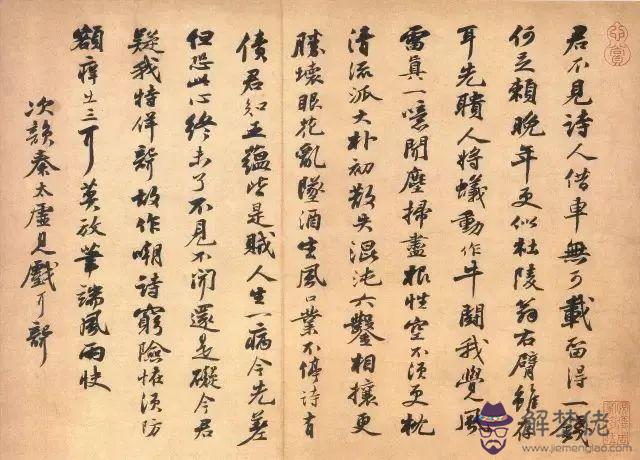 君不見詩人借車無可載留得一錢
何足賴晚年更似杜陵翁右臂雖存
耳先聵人將蟻動作牛鬬我覺風
雷真一噫聞塵掃盡根性空不須更枕
清流派大朴初散失混沌六鑿相攘更
勝壞眼花亂墜酒生風口業不停詩有
債君知五蘊皆是賊人生一病今先差
但恐此心終未了不見不聞還是礙今君
疑我特佯聾故作嘲詩窮險怪須防
額癢出三耳莫放筆端風雨快
次韻秦太虛見戲耳聾
解梦佬
www.jiemenglao.com